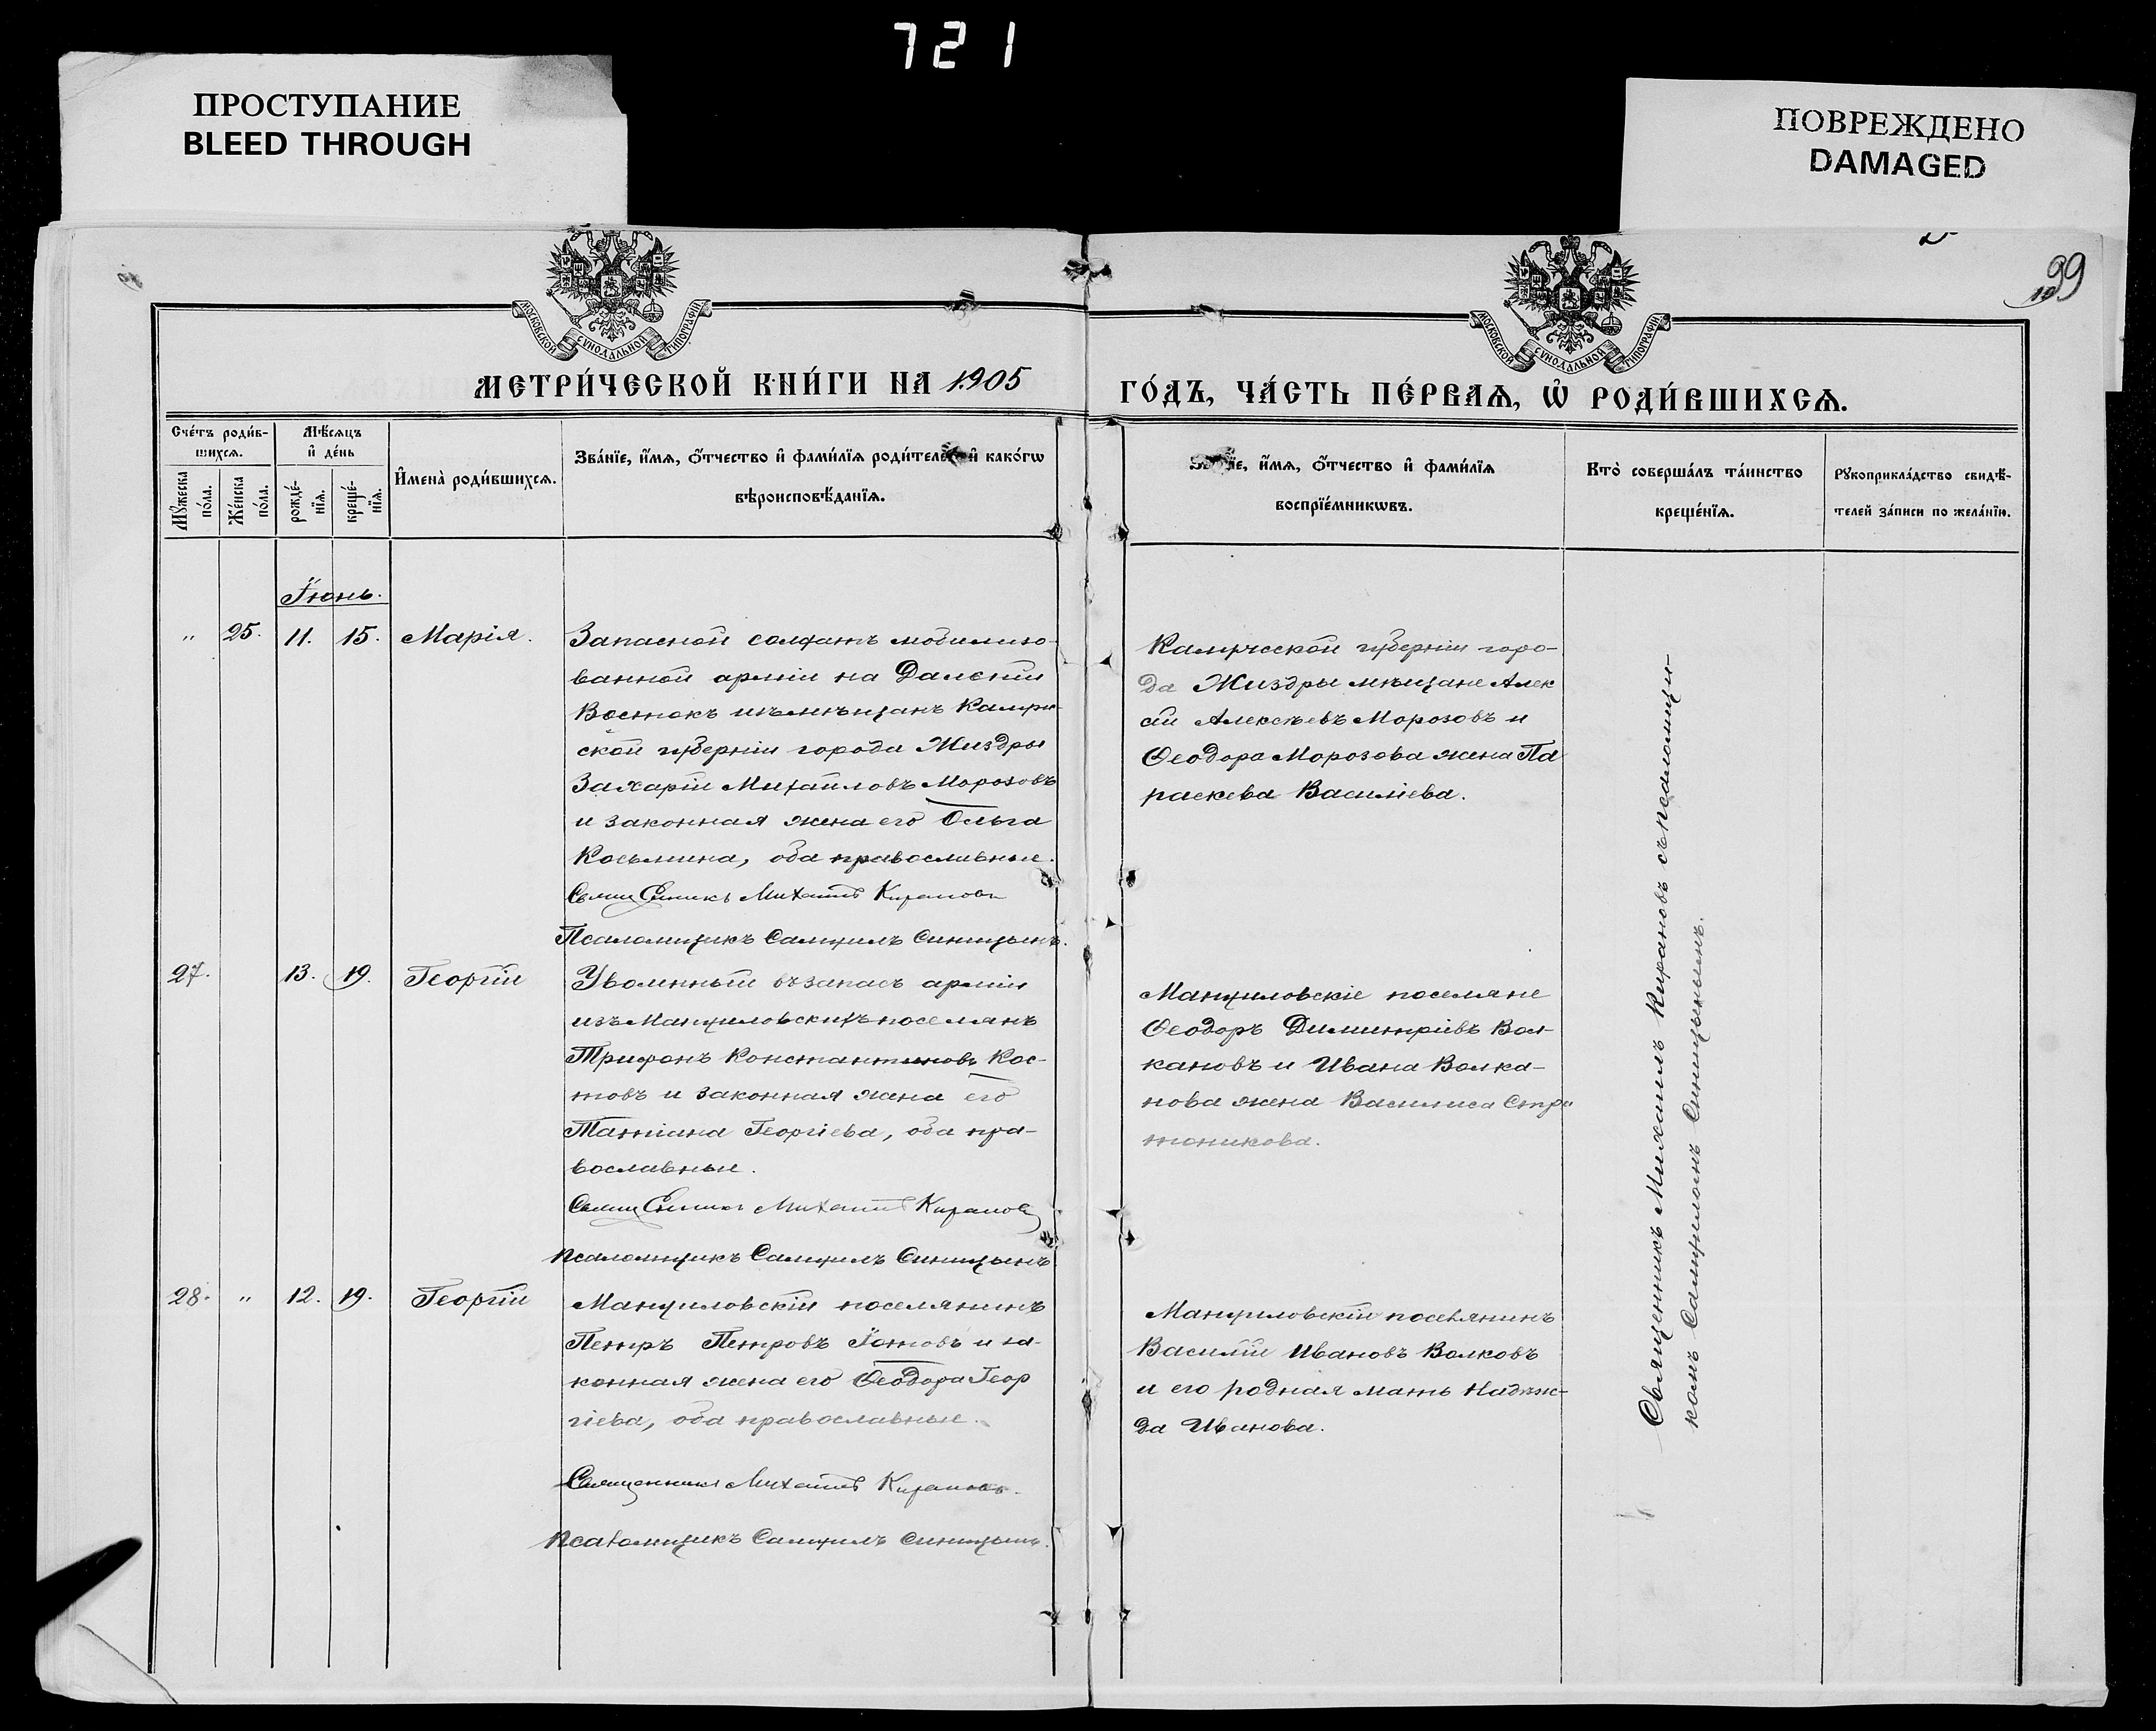 721
ПРОСТУПАНИЕ
BLEED THROUGH
ПОВРЕЖДЕНО
DAMAGED
99
МОСКОВСКОЙ СѴНОДАЛЬНОЙ ТИПОГРАФІИ
МОСКОВСКОЙ СѴНОДАЛЬНОЙ ТИПОГРАФІИ
МЕТРИ́ЧЕСКОЙ КНИ́ГИ НА 1905
ГО́ДЪ, ЧА́СТЬ ПЕ́РВАѦ, Ѡ҆ РОДИ́ВШИХСѦ.
Сче́тъ роди́в-
шихсѧ.
Мꙋ́жеска по́ла.
Же́нска по́ла.
Мѣ́сѧцъ
и҆ де́нь
рожде́-
нїѧ.
креще́-
нїѧ.
И҆мена̀ роди́вшихсѧ.
Зва́нїе, и҆́мѧ, ѻ҆́тчество и҆ фами́лїѧ роди́телей и҆ како́гѡ
вѣроисповѣ́данїѧ.
Зва́нїе, и҆́мѧ, ѻ҆́тчество и҆ фами́лїѧ
воспрїе́мникѡвъ.
Кто̀ соверша́лъ та́инство
креще́нїѧ.
Рꙋкоприкла́дство свидѣ́-
телей за́писи по жела́нїю.
Іюнь.
" 25. 11. 15. Марія.
Запасной солдатъ мобилизо-
ванной арміи на Дальній
Востокъ изъ мѣщанъ Калуж-
ской губерніи города Жиздры
Захарій Михайловъ Морозовъ
и законная жена его Ольга
Косьмина, оба православные.
Священникъ Михаилъ Кирановъ
Псаломщикъ Самуилъ Синицынъ.
Калужской губерніи горо-
да Жиздры мѣщане Алек
сій Алексѣевъ Морозовъ и
Ѳеодора Морозова жена Па
раскева Василіева.
27. 13. 19. Георгій
Уволенный въ запасъ арміи
изъ Мануиловскихъ поселянъ
Трифонъ Константиновъ Кос-
товъ и законная жена его
Татіана Георгіева, оба пра-
вославные.
Священникъ Михаилъ Кирановъ
Псаломщикъ Самуилъ Синицынъ
Мануиловскіе поселяне
Ѳеодоръ Димитріевъ Вол-
кановъ и Ивана Волка-
нова жена Василиса Стра
тоникова.
28. " 12. 19. Георгій
Мануиловскій поселянинъ
Петръ Петровъ Іотовъ и за-
конная жена его Ѳеодора Геор
гіева, оба православные.
Священникъ Михаилъ Кирановъ.
Псаломщикъ Самуилъ Синицынъ.
Мануиловскій поселянинъ
Василій Ивановъ Волковъ
и его родная мать Надеж-
да Иванова.
Священникъ Михаилъ Кирановъ съ псаломщи-
комъ Самуиломъ Синицынымъ.